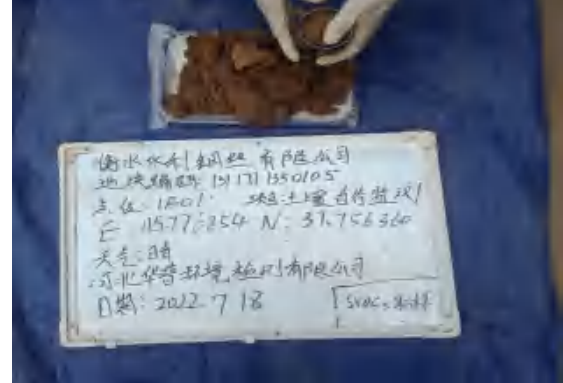 衡水水利钢丝有限公司
地块编码:1311713350105
点位:1E01 地块土壤自行监测
E 115.772854 N:37.756360
天气:晴
河北华普环境检测有限公司
日期:2022.7.18
SVOCs采样